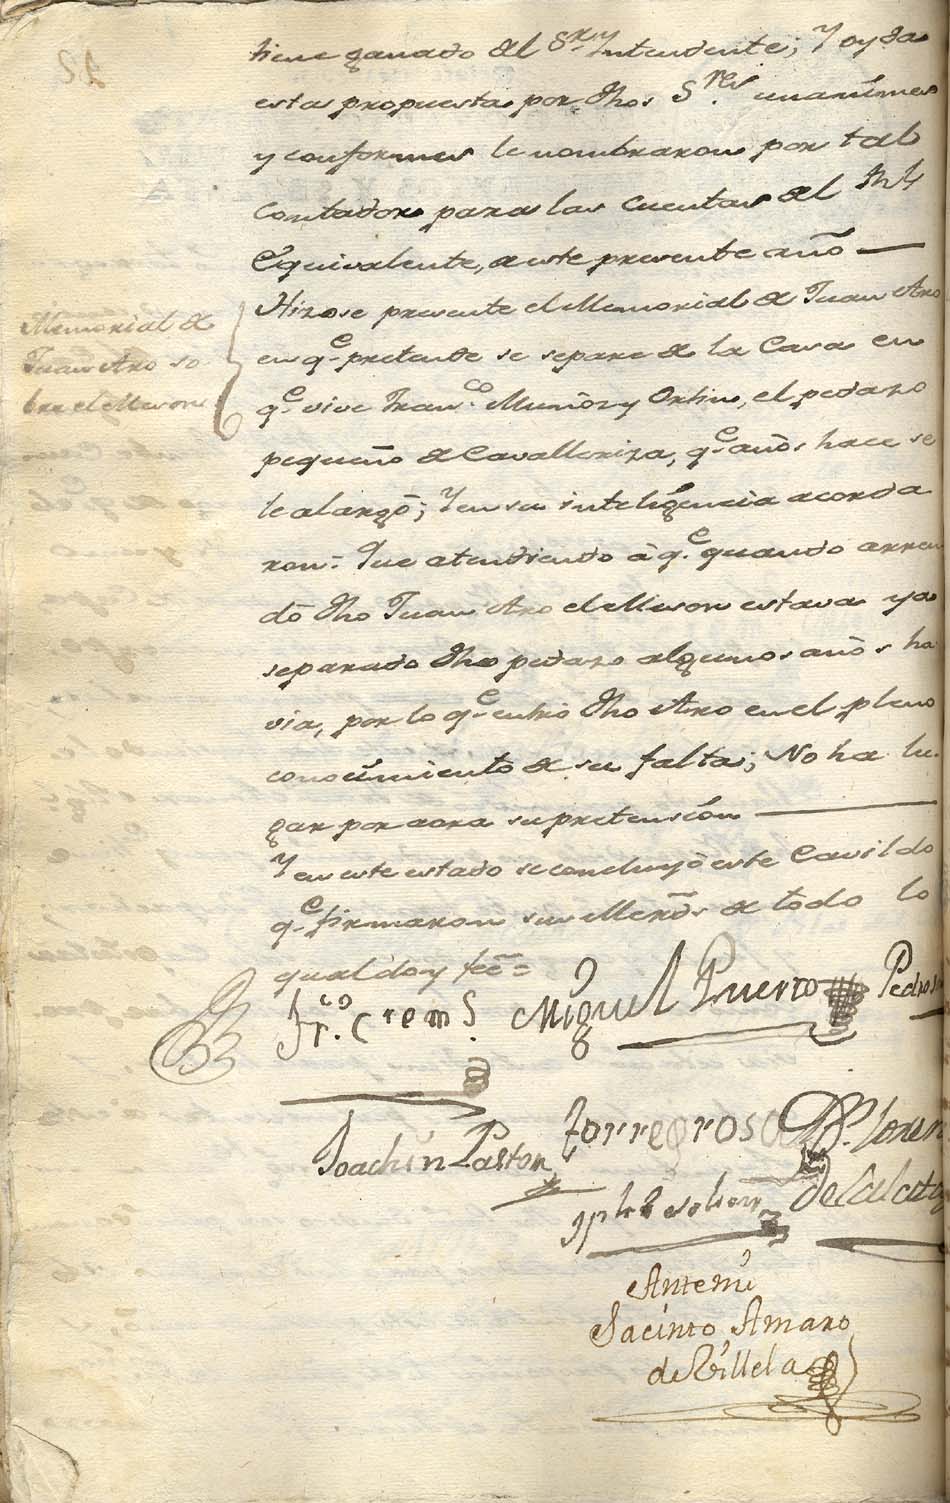 tiene ganado del Sr. Yntendente; Y oyda
esta propuesta por dhos. Sres. unanimes
y conformes le nombraron por tal
contador para las cuentas del Rl.
Equivalente, deste presente año
Memorial de
Juan Aro so-
bre el Meson
Hizose presente el Memorial de Juan Aro
en qe. pretende se separe de la Casa en
qe. vive Franco. Muñoz y Ortin, el pedazo
pequeño de Cavalleriza, qe. años hace se
le alargó; Y en su inteligencia acorda
ron: Que atendiendo à qe. quando arren
dó dho Juan Aro el Meson estava ya
separado dho pedazo algunos años ha
via, por lo qe. entró dho Aro en el pleno
conocimiento de su falta; No ha lu-
gar por aora su pretensión
Y en este estado se concluyó este Cavildo
qe. firmaron sus Mercds. de todo lo
qual doy feé =
Fr.co Crems Miguel Puerto Pedro
Joachin Pastor Torregrosa Dn. Loren
de Alcat
Antemi
Jacinto Amaro
de Villela